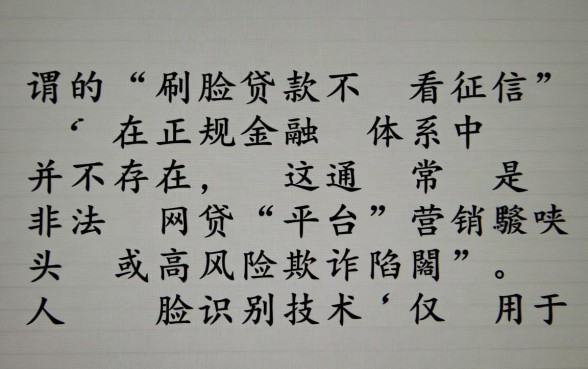 谓的“刷脸贷款不 看征信”
‘在正规金融 体系中
并不存在， 这通 常 是
非法 网贷“平台”营销
头 或高风险欺诈陷”。
人 脸识别技术‘仅 用于